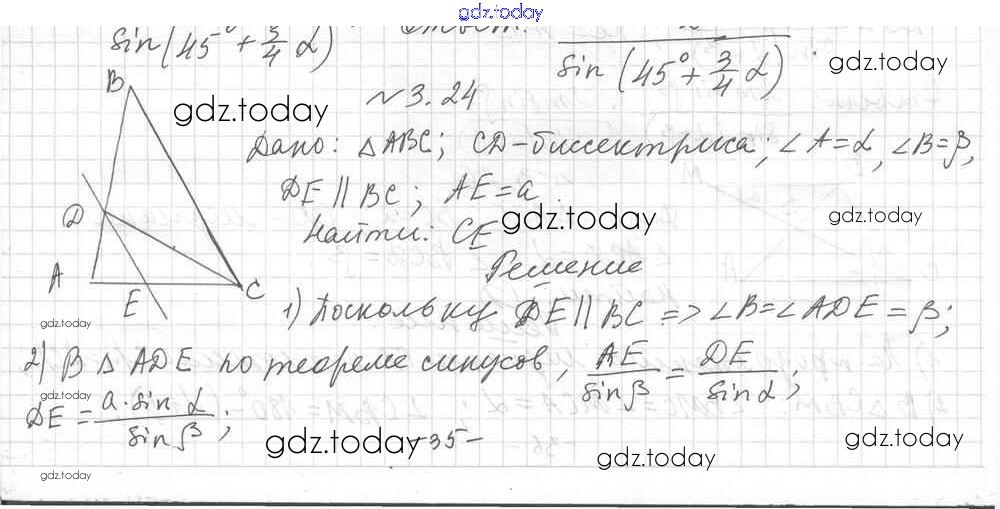 gdz.today
sin(45° + 3/4 α)
sin(45° + 3/4 α) .
gdz.today
B
gdz.today
№ 3.24
Дано: △ABC; CD-биссектриса; ∠A=α, ∠B=β,
DE || BC; AE=a.
gdz.today
gdz.today
D
Найти: CE
Решение
A
E
C
1) Поскольку DE || BC => ∠B=∠ADE=β;
gdz.today
2) В △ADE по теореме синусов, AE/sinβ = DE/sinα;
gdz.today
DE = a·sin α/sin β;
gdz.today
-35-
gdz.today
gdz.today
gdz.today